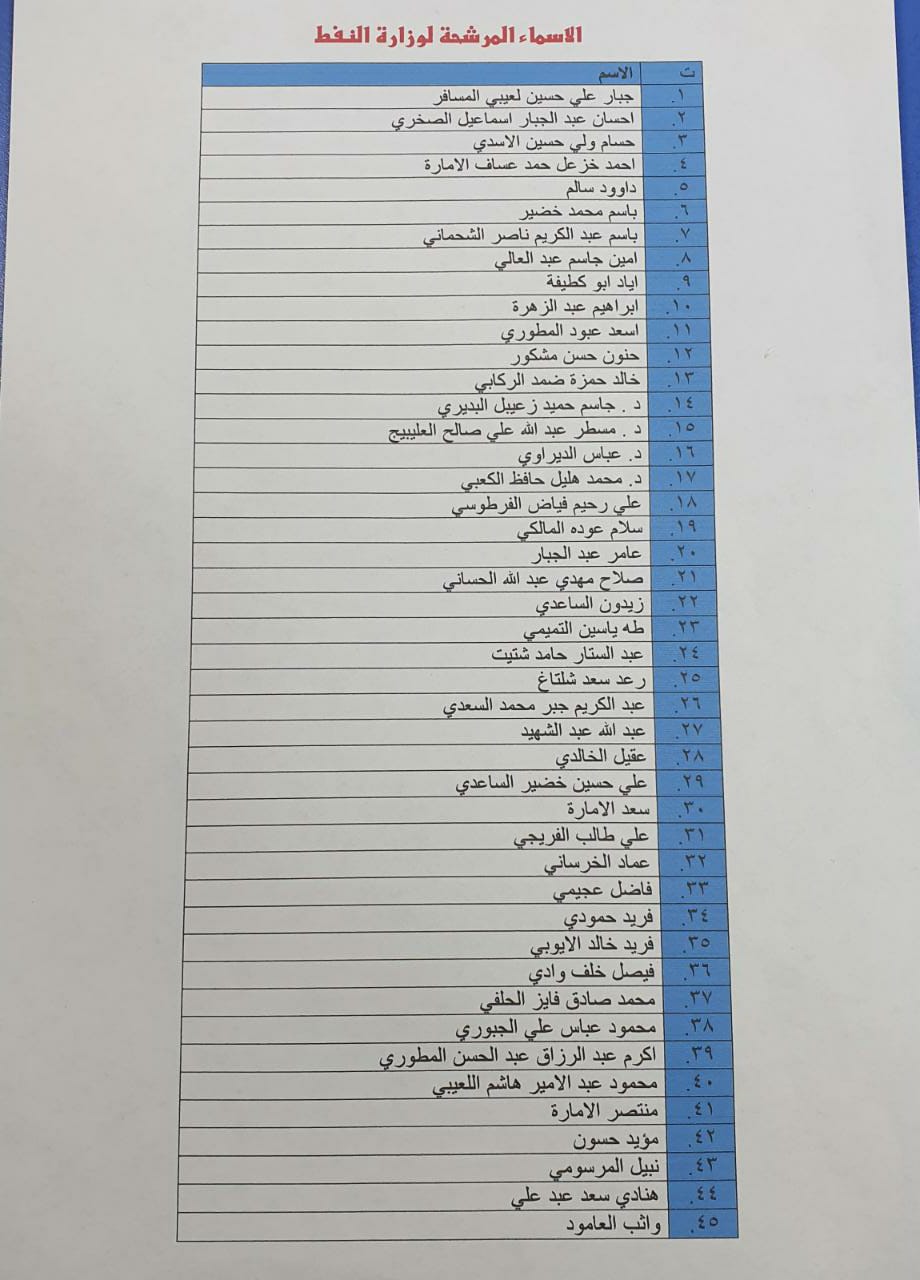 الاسماء المرشحة لوزارة النفط
ت الاسم
١. جبار علي حسين لعيبي المسافر
٢. احسان عبد الجبار اسماعيل الصخري
٣. حسام ولي حسين الاسدي
٤. احمد خزعل حمد عساف الامارة
٥. داوود سالم
٦. باسم محمد خضير
٧. باسم عبد الكريم ناصر الشحماني
٨. امين جاسم عبد العالي
٩. اياد ابو كطيفة
١٠. ابراهيم عبد الزهرة
١١. اسعد عبود المطوري
١٢. حنون حسن مشكور
١٣. خالد حمزة ضمد الركابي
١٤. د . جاسم حميد زعيبل البديري
١٥. د . مسطر عبد الله علي صالح العليبيج
١٦. د. عباس الديراوي
١٧. د. محمد هليل حافظ الكعبي
١٨. علي رحيم فياض الفرطوسي
١٩. سلام عوده المالكي
٢٠. عامر عبد الجبار
٢١. صلاح مهدي عبد الله الحساني
٢٢. زيدون الساعدي
٢٣. طه ياسين التميمي
٢٤. عبد الستار حامد شتيت
٢٥. رعد سعد شلتاغ
٢٦. عبد الكريم جبر محمد السعدي
٢٧. عبد الله عبد الشهيد
٢٨. عقيل الخالدي
٢٩. علي حسين خضير الساعدي
٣٠. سعد الامارة
٣١. علي طالب الفريجي
٣٢. عماد الخرساني
٣٣. فاضل عجيمي
٣٤. فريد حمودي
٣٥. فريد خالد الايوبي
٣٦. فيصل خلف وادي
٣٧. محمد صادق فايز الحلفي
٣٨. محمود عباس علي الجبوري
٣٩. اكرم عبد الرزاق عبد الحسن المطوري
٤٠. محمود عبد الامير هاشم اللعيبي
٤١. منتصر الامارة
٤٢. مؤيد حسون
٤٣. نبيل المرسومي
٤٤. هنادي سعد عبد علي
٤٥. واثب العامود